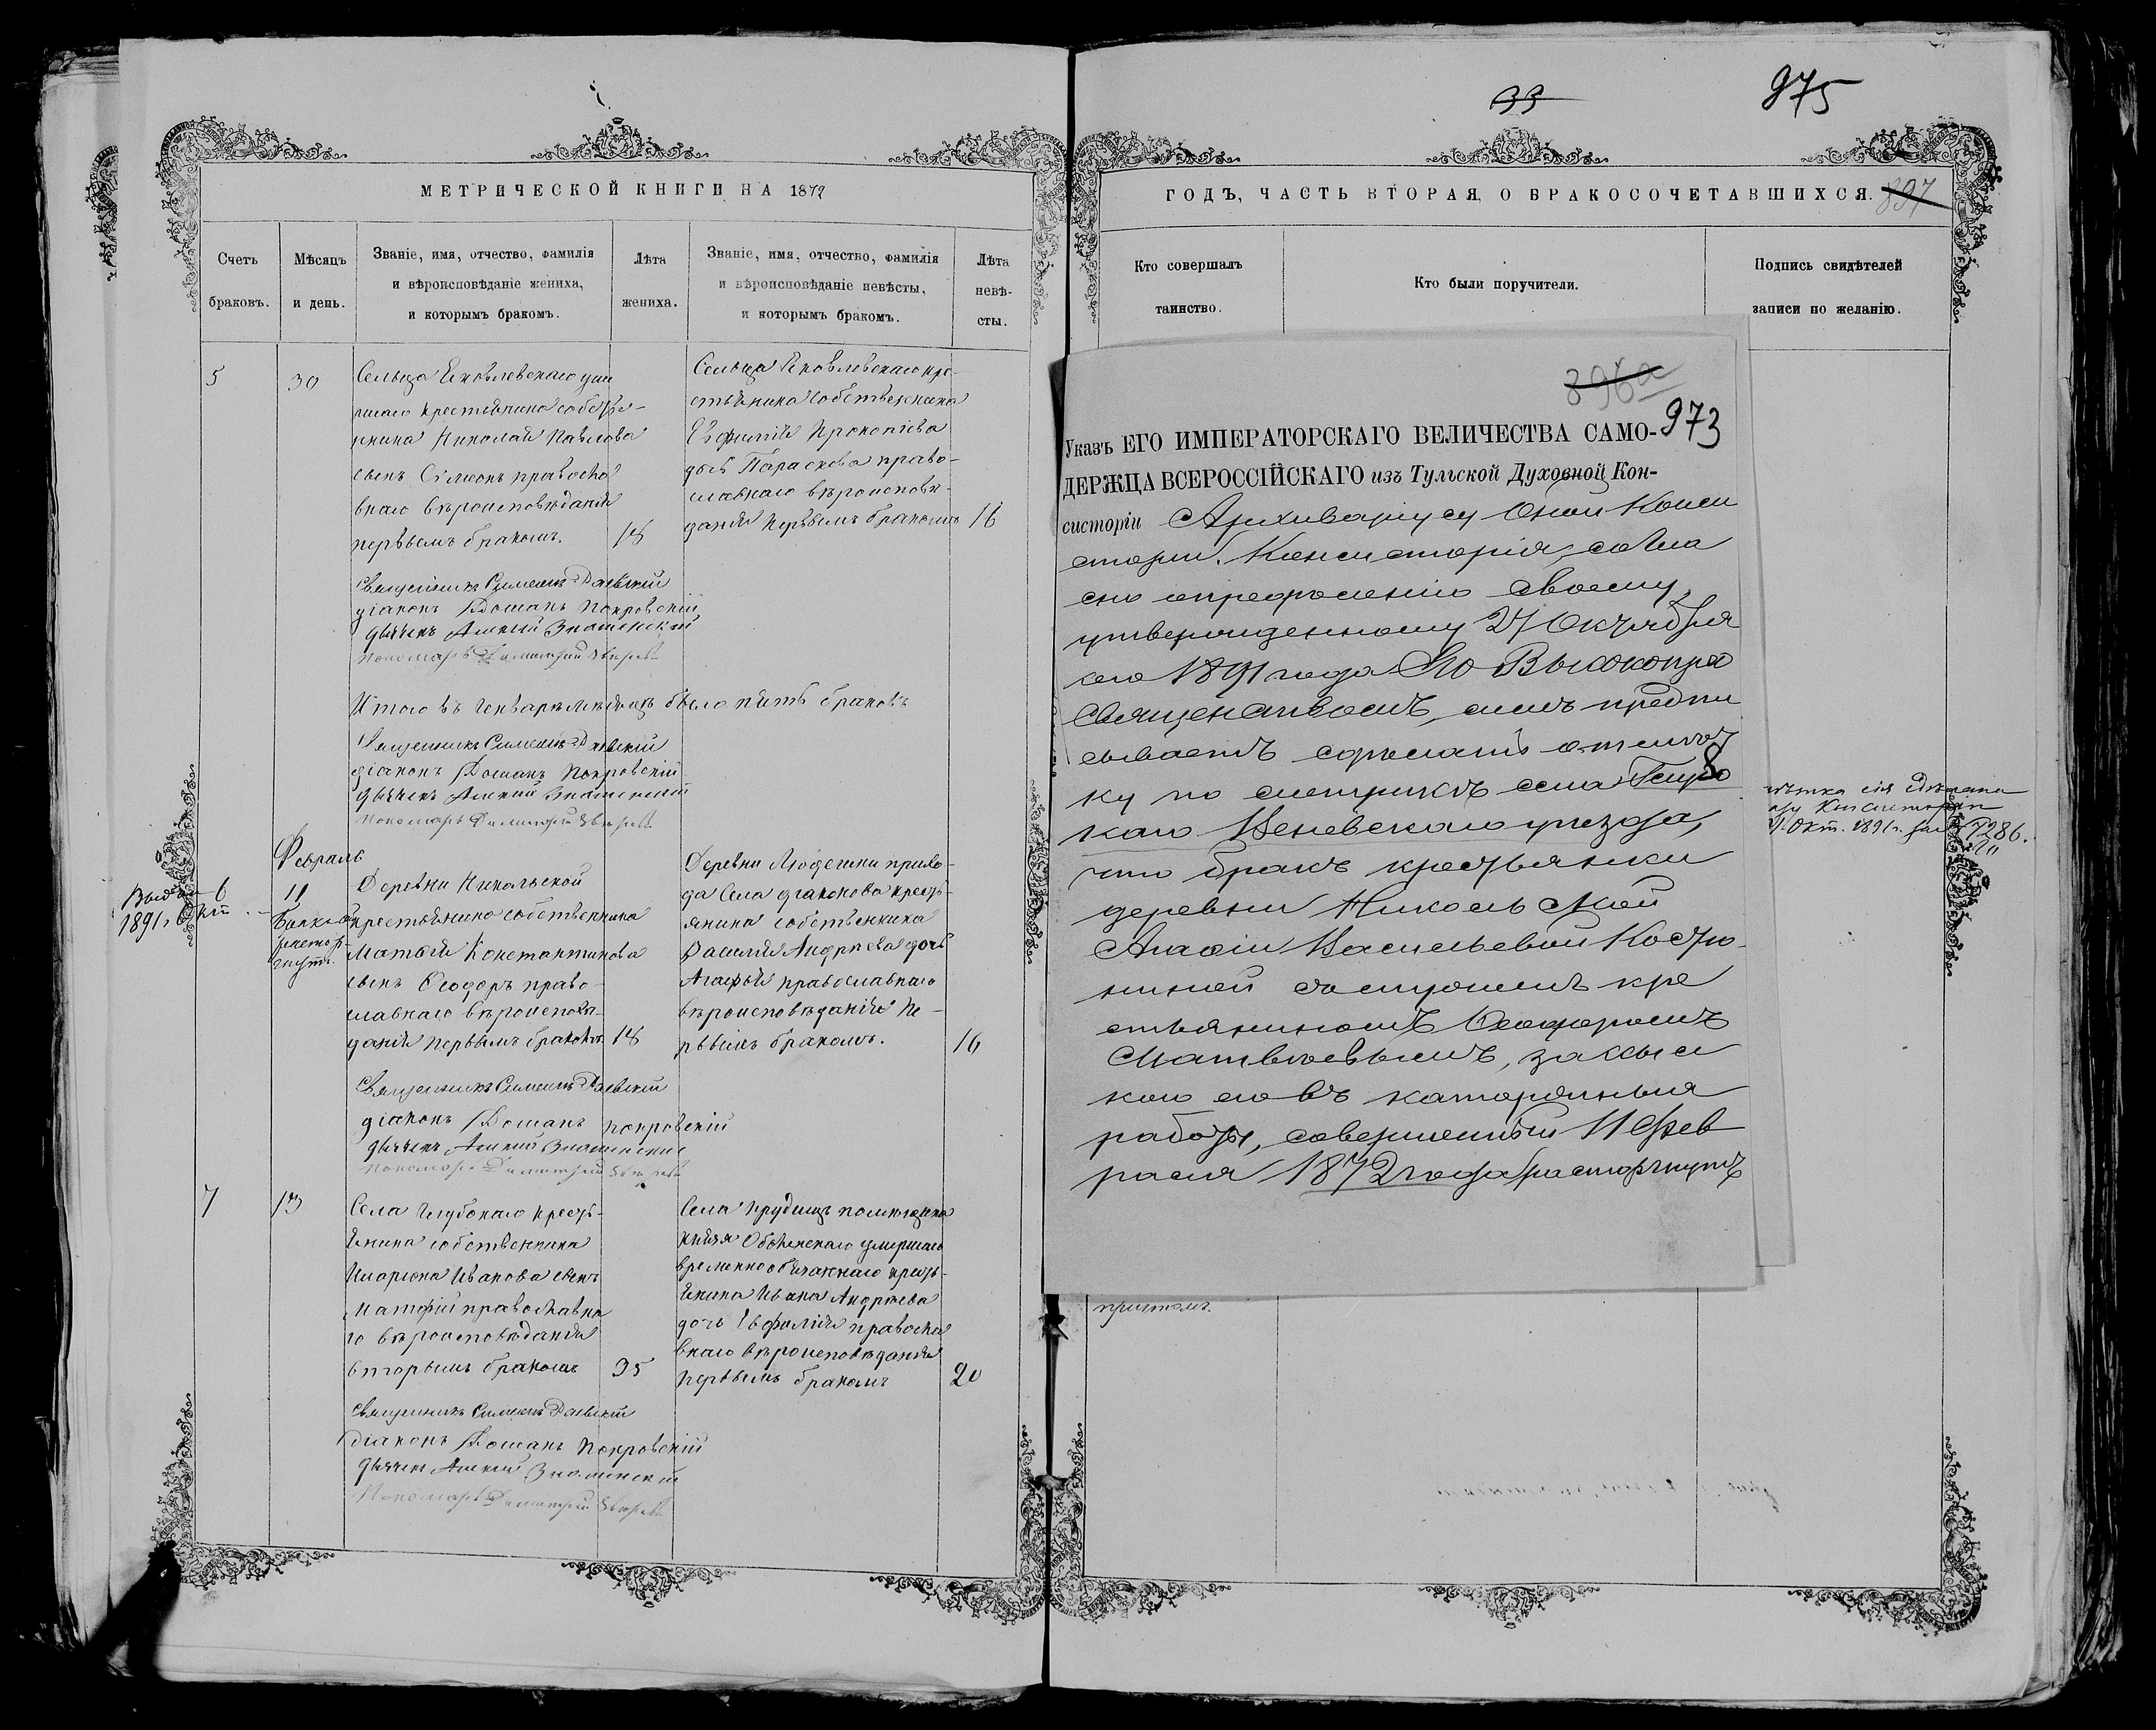 33
975
МЕТРИЧЕСКОЙ КНИГИ НА 1872
ГОДЪ, ЧАСТЬ ВТОРАЯ, О БРАКОСОЧЕТАВШИХСЯ.
897
Счетъ
браковъ.
Мѣсяцъ
и день.
Званіе, имя, отчество, фамилія
и вѣроисповѣданіе жениха,
и которымъ бракомъ.
Лѣта
жениха.
Званіе, имя, отчество, фамилія
и вѣроисповѣданіе невѣсты,
и которымъ бракомъ.
Лѣта
невѣ-
сты.
Кто совершалъ
таинство.
Кто были поручители.
Подпись свидѣтелей
записи по желанію.
5
30
Сельца Яковлевскаго уме
ршаго крестьянина собстве-
нника Николая Павлова
сынъ Сѵмеонъ правосла
внаго вѣроисповѣданія
первымъ бракомъ.
18
Сельца Яковлевскаго кре-
стьянина собственника
Евфимія Прокопіева
дочь Параскева право-
славнаго вѣроисповѣ-
данія первымъ бракомъ
16
Священникъ Симеонъ Раевскій
діаконъ Романъ Покровскій
дьячекъ Алексій Знаменскій
Пономарь Димитрій Звѣревъ
Итого въ Генварѣ мѣсяцѣ было пять браковъ
Священникъ Симеонъ Раевскій
діаконъ Романъ Покровскій
дьячекъ Алексій Знаменскій
Пономарь Димитрій Звѣревъ
Февраль
6
1891 г. Окт
11
Бракъ
расторг
нутъ.
Деревни Никольской
крестьянина собственника
Матѳія Константинова
сынъ Ѳеодоръ право-
славнаго вѣроисповѣ-
данія первымъ бракомъ
18
Деревни прихо-
да Села Дьяконова кресть-
янина собственника
Василія Андреева дочь
Агафія православнаго
вѣроисповѣданія пе-
рвымъ бракомъ.
16
Священникъ Симеонъ Раевскій
діаконъ Романъ Покровскій
дьячекъ Алексій Знаменскій
Пономарь Димитрій Звѣревъ
7
13
Села Глубокаго кресть-
янина собственника
Иларіона Иванова сынъ
Матфій православна
го вѣроисповѣданія
вторымъ бракомъ
35
Села Прудищъ помѣщика
князя Оболенскаго умершаго
временнообязаннаго кресть-
янина Ивана Андреева
дочь Евфимія правосла
внаго вѣроисповѣданія
первымъ бракомъ
20
Священникъ Симеонъ Раевскій
діаконъ Романъ Покровскій
дьячекъ Алексій Знаменскій
Пономарь Димитрій Звѣревъ
396а
973
Указъ ЕГО ИМПЕРАТОРСКАГО ВЕЛИЧЕСТВА САМО-
ДЕРЖЦА ВСЕРОССІЙСКАГО изъ Тульской Духовной Кон-
систоріи Архиваріусу Оной Конси
сторіи. Консисторія, согла
сно опредѣленію своему,
утвержденному 27 Октября
сего 1891 года Его Высокопрео
священствомъ, симъ предпи
сываетъ сдѣлать отмѣт
ку по метрикѣ села Глубо
каго Веневскаго уѣзда,
что бракъ крестьянки
деревни Никольской
Агаѳіи Васильевой Костю
ниной съ мужемъ кре
стьяниномъ Ѳеодоромъ
Матвѣевымъ, за ссыл
кою его въ каторжныя
работы, совершенный 11 Фев
раля 1872 года расторгнутъ
мѣтка сія сдѣлана
Консисторіи
Окт. 1891 г. за № 7286.